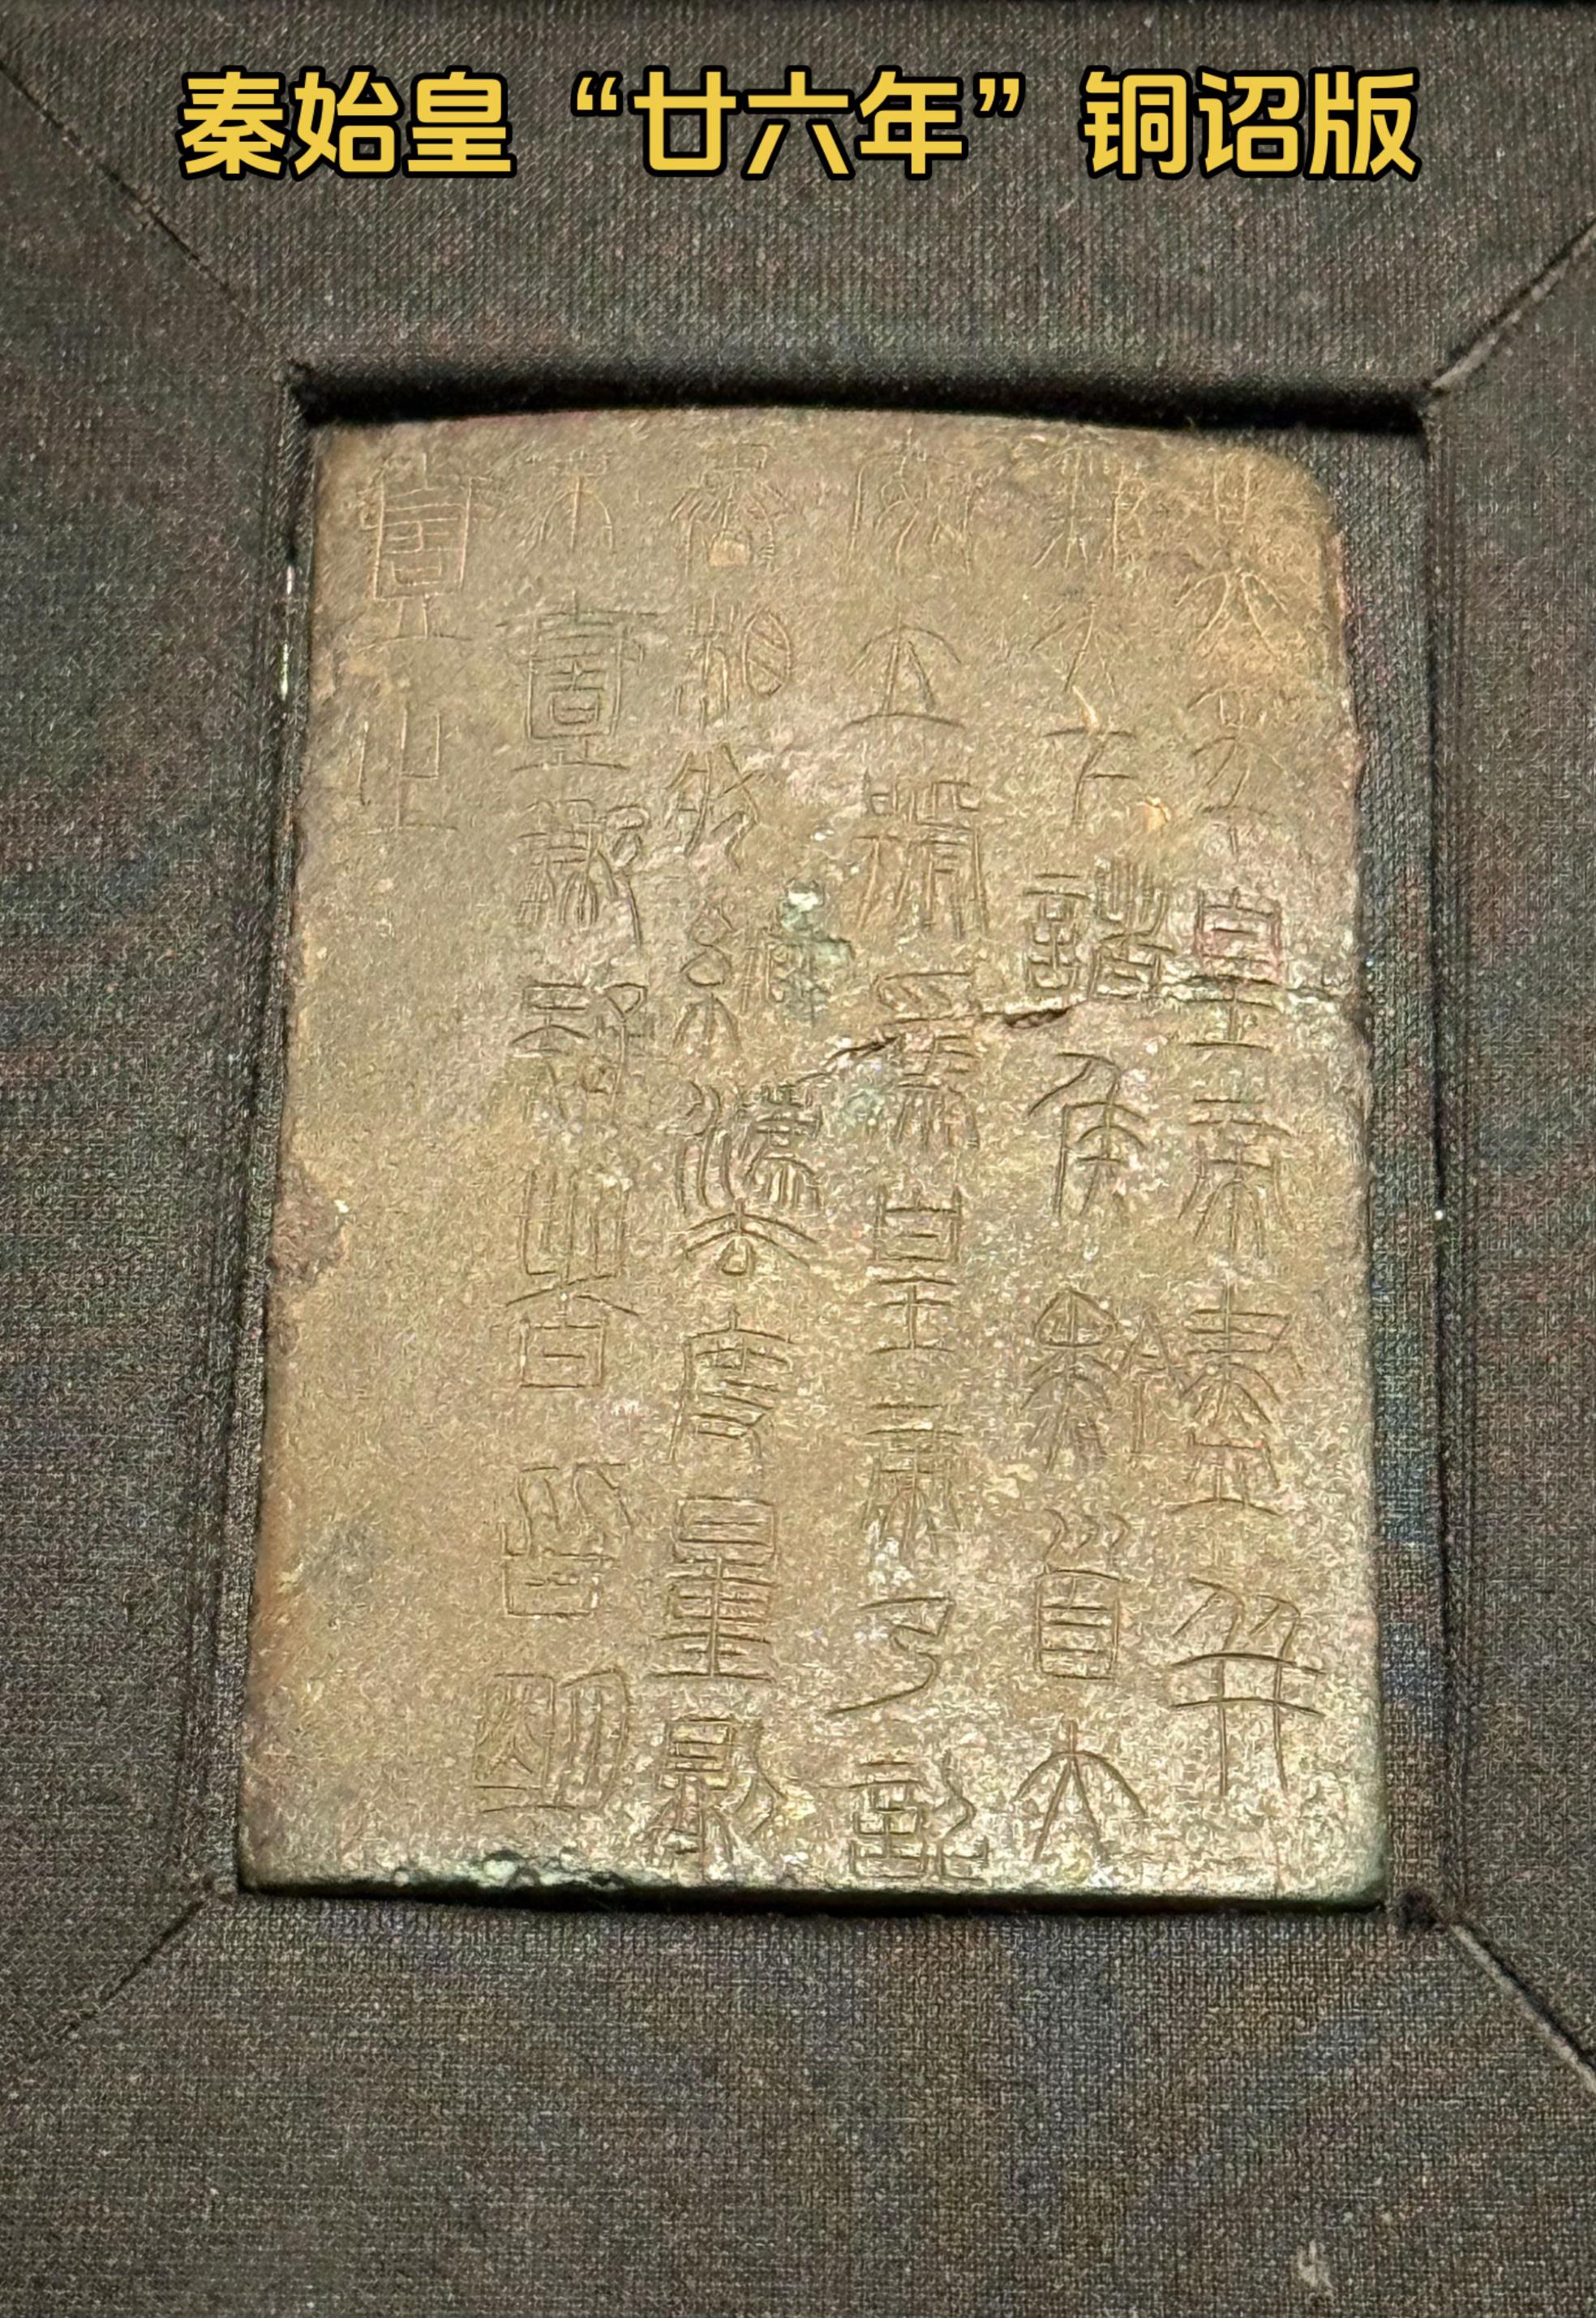 秦始皇“廿六年”铜诏版
廿六年皇帝盡并
兼天下諸侯黔首大
安立號為皇帝乃詔
丞相狀綰灋度量則
不壹歉疑者皆明
壹之